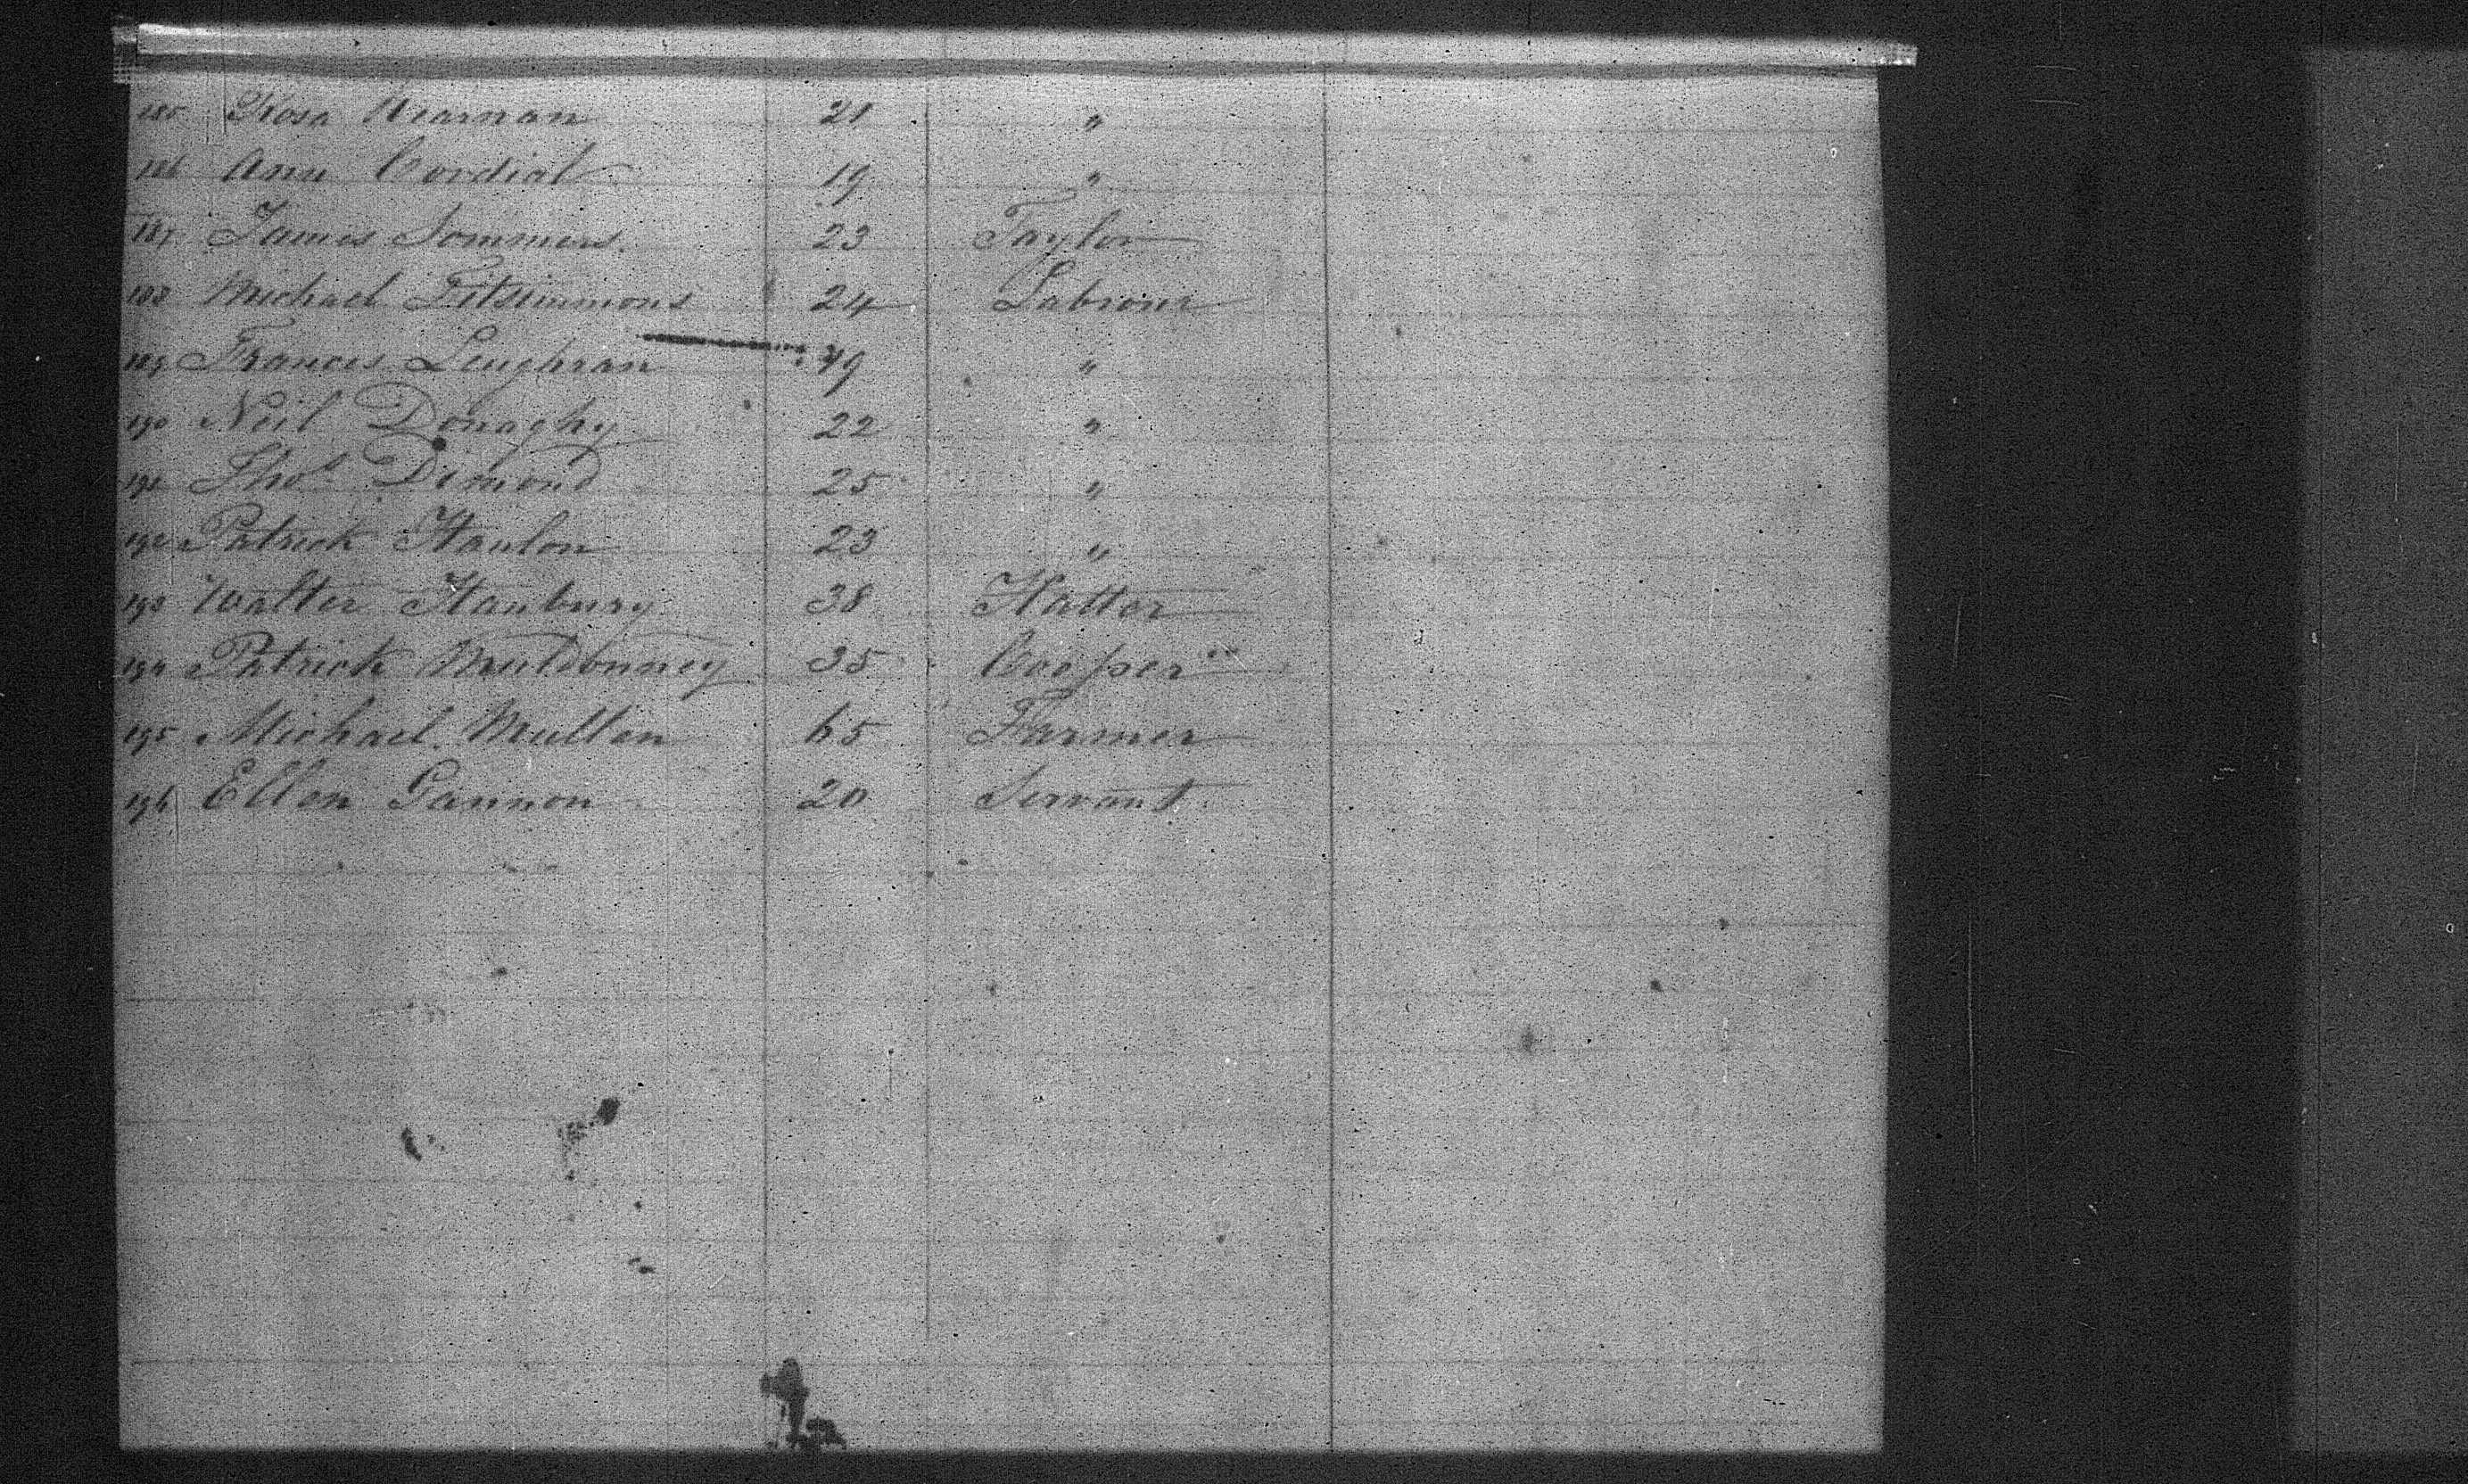 185 Rosa Kearnan 21 "
186 Ann Cordial 19 "
187 James Sommers 23 Taylor
188 Michael Fitsimmons 24 Labrour
189 Francis Loughran 49 "
190 Neil Donaghy 22 "
191 Thos Dimond 25 "
192 Patrick Hanlon 23 "
193 Walter Hanbury 38 Hatter
194 Patrick Muldonney 35 Cooper
195 Michael Mullen 65 Farmer
196 Ellen Gannon 20 Servant